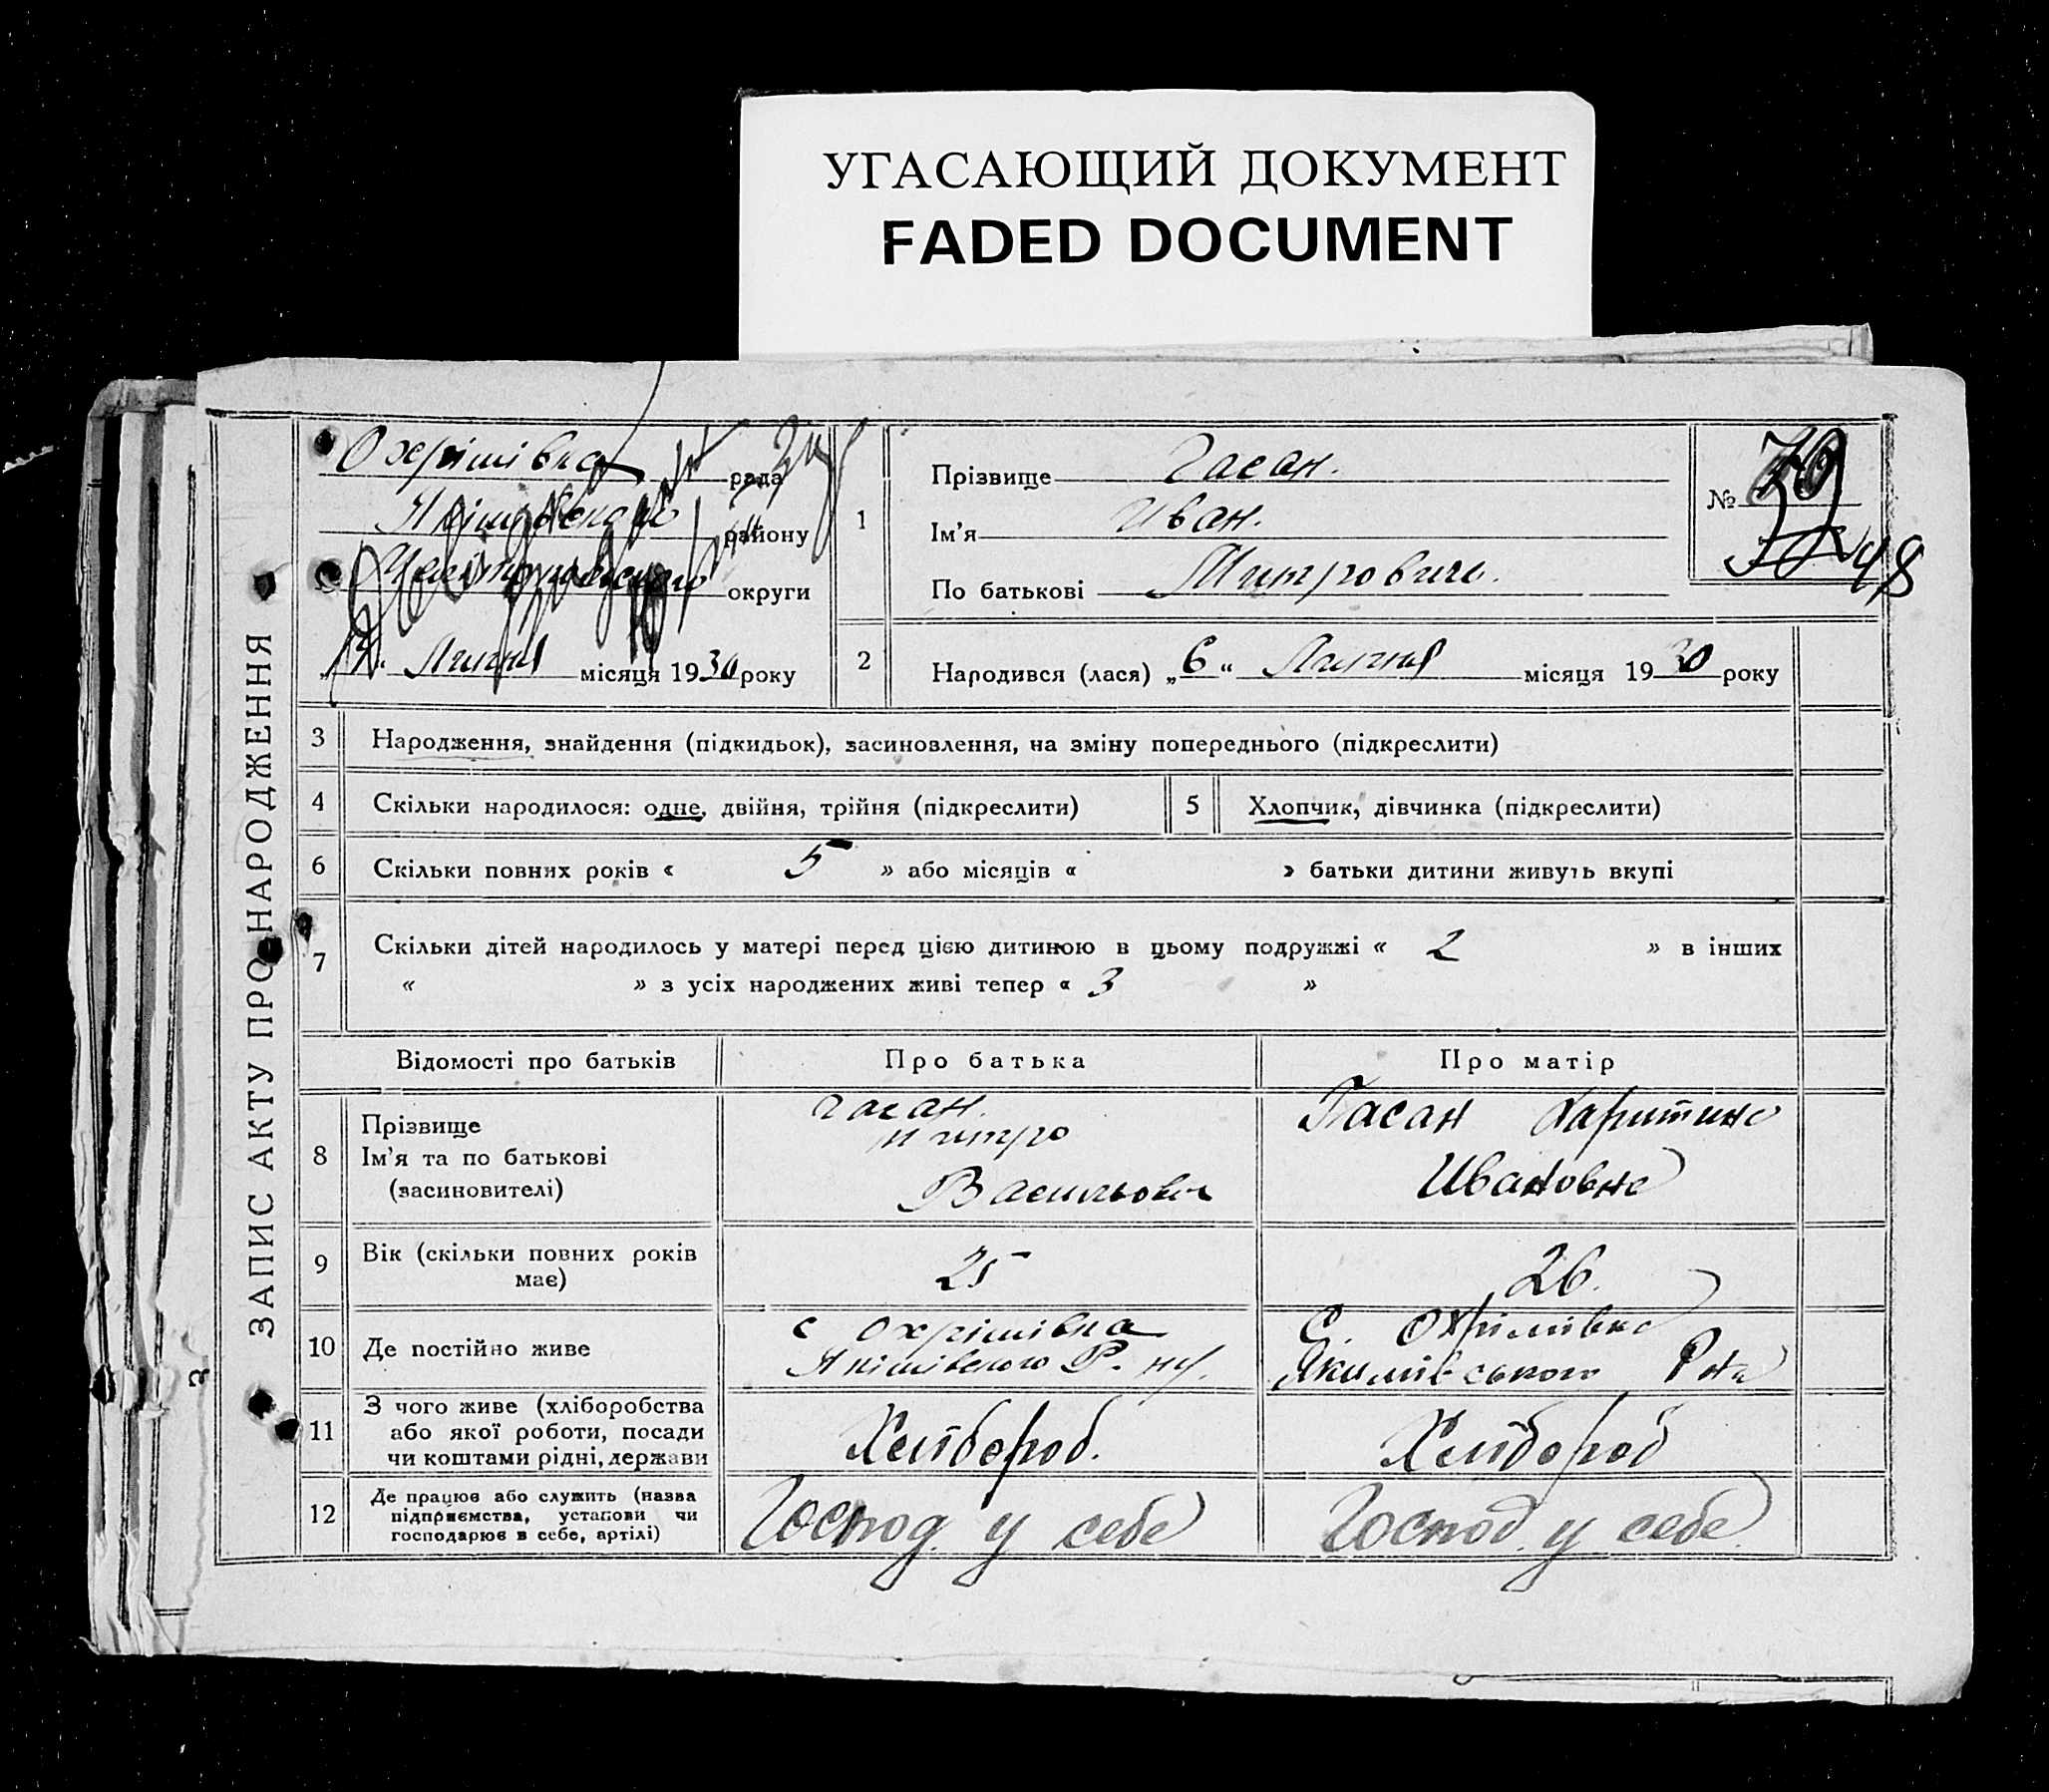 УГАСАЮЩИЙ ДОКУМЕНТ
FADED DOCUMENT
ЗАПИС АКТУ ПРО НАРОДЖЕННЯ
Охрімівка рада
району
округи
Липня місяця 1930 року
1
Прізвище Гасан.
Ім'я Иван.
По батькові Митрович.
№
48
2
Народився (лася) „6“ Липня місяця 1930 року
3 Народження, знайдення (підкидьок), засиновлення, на зміну попереднього (підкреслити)
4 Скільки народилося: одне, двійня, трійня (підкреслити)
5 Хлопчик, дівчинка (підкреслити)
6 Скільки повних років « 5 » або місяців « » батьки дитини живуть вкупі
7 Скільки дітей народилось у матері перед цією дитиною в цьому подружжі « 2 » в інших
« » з усіх народжених живі тепер « 3 »
Відомості про батьків
Про батька
Про матір
8
Прізвище
Ім'я та по батькові
(засиновителі)
Гасан.
Митро
Васильович
Гасан Харитина
Ивановна
9
Вік (скільки повних років
має)
25
26.
10 Де постійно живе
с Охрімівка
Якімівського Р.
С. Охрімівка
Якимівського Р на
11
З чого живе (хліборобства
або якої роботи, посади
чи коштами рідні, держави
Хлібороб.
Хлібороб
12
Де працює або служить (назва
підприємства, установи чи
господарює в себе, артілі)
Господ. у себе
Господ. у себе